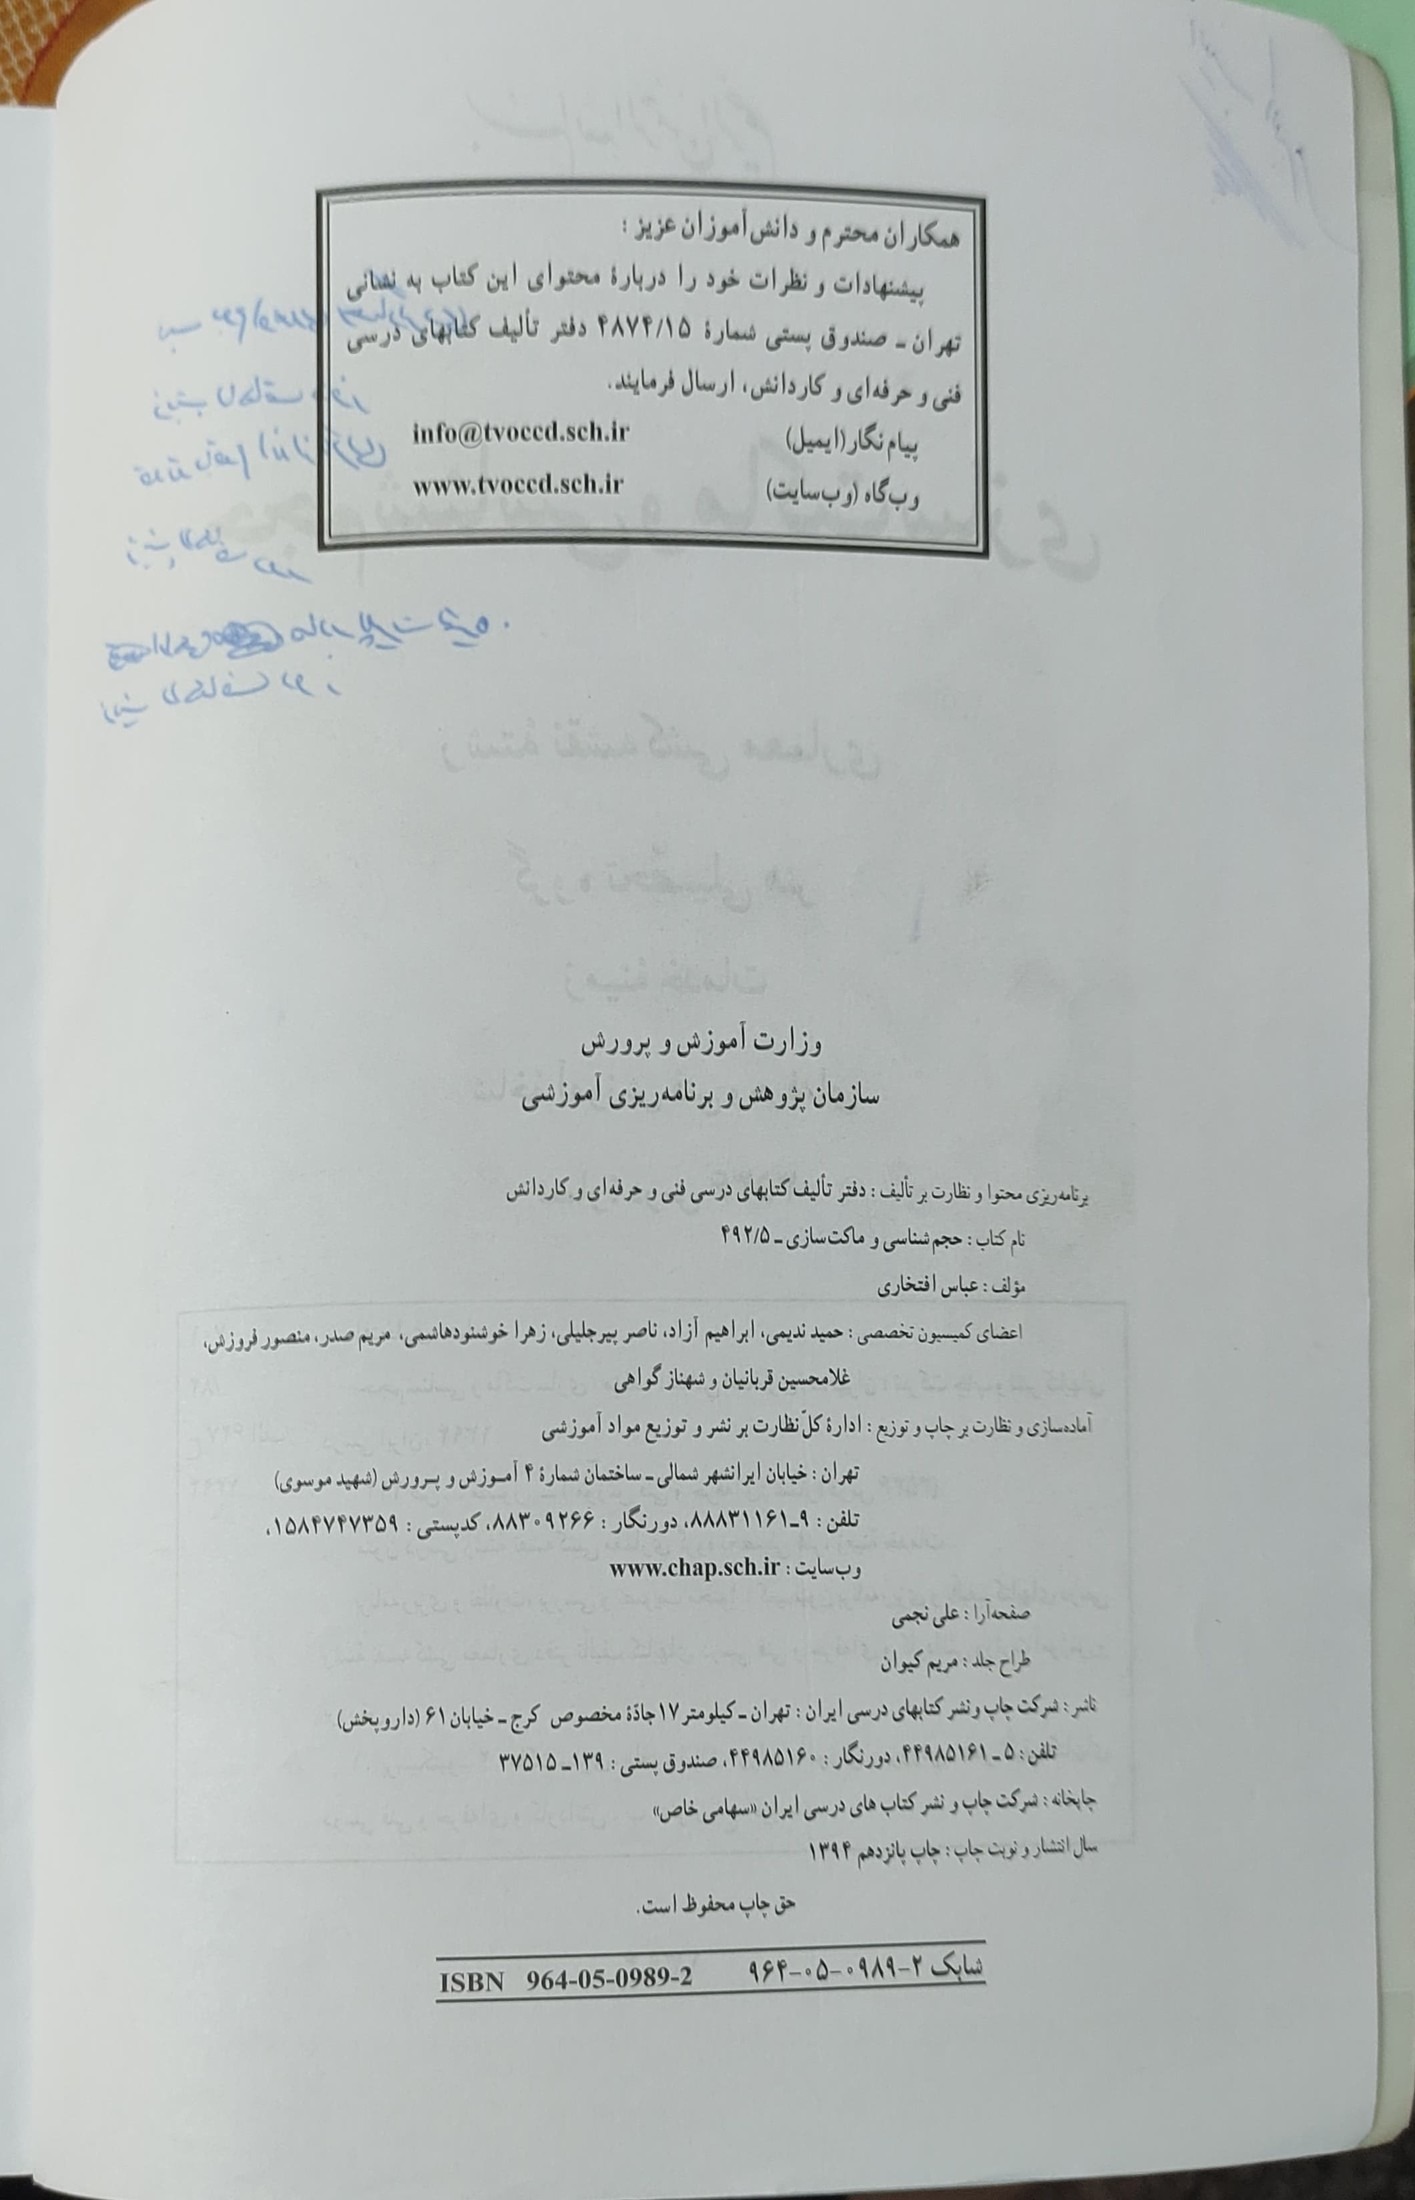 همکاران محترم و دانش‌آموزان عزیز :
پیشنهادات و نظرات خود را دربارهٔ محتوای این کتاب به نشانی
تهران ـ صندوق پستی شمارهٔ ۴۸۷۴/۱۵ دفتر تألیف کتابهای درسی
فنی و حرفه‌ای و کاردانش، ارسال فرمایند.
پیام‌نگار(ایمیل) info@tvoccd.sch.ir
وب‌گاه (وب‌سایت) www.tvoccd.sch.ir
وزارت آموزش و پرورش
سازمان پژوهش و برنامه‌ریزی آموزشی
برنامه‌ریزی محتوا و نظارت بر تألیف : دفتر تألیف کتابهای درسی فنی و حرفه‌ای و کاردانش
نام کتاب : حجم‌شناسی و ماکت‌سازی ـ ۴۹۲/۵
مؤلف : عباس افتخاری
اعضای کمیسیون تخصصی : حمید ندیمی، ابراهیم آزاد، ناصر پیرجلیلی، زهرا خوشنودهاشمی، مریم صدر، منصور فروزش،
غلامحسین قربانیان و شهناز گواهی
آماده‌سازی و نظارت بر چاپ و توزیع : ادارهٔ کلّ نظارت بر نشر و توزیع مواد آموزشی
تهران : خیابان ایرانشهر شمالی ـ ساختمان شمارهٔ ۴ آمـوزش و پـرورش (شهید موسوی)
تلفن : ۹ـ۸۸۸۳۱۱۶۱، دورنگار : ۸۸۳۰۹۲۶۶، کدپستی : ۱۵۸۴۷۴۷۳۵۹،
وب‌سایت : www.chap.sch.ir
صفحه‌آرا : علی نجمی
طراح جلد : مریم کیوان
ناشر : شرکت چاپ و نشر کتابهای درسی ایران : تهران ـ کیلومتر ۱۷ جادّهٔ مخصوص کرج ـ خیابان ۶۱ (داروپخش)
تلفن : ۵ ـ ۴۴۹۸۵۱۶۱، دورنگار : ۴۴۹۸۵۱۶۰، صندوق پستی : ۱۳۹ـ ۳۷۵۱۵
چاپخانه : شرکت چاپ و نشر کتاب های درسی ایران «سهامی خاص»
سال انتشار و نوبت چاپ : چاپ پانزدهم ۱۳۹۴
حق چاپ محفوظ است.
شابک ۲-۰۹۸۹-۰۵-۹۶۴ ISBN 964-05-0989-2